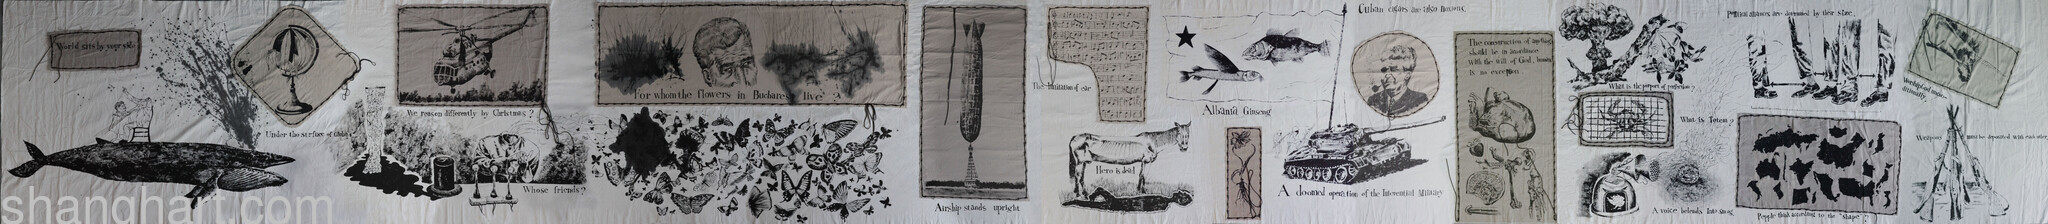 World sits by your side
Under the surface of
We reason differently by Christmas?
Whose friends?
For whom the flowers in Buchare live?
Airship stands upright
The limitation of ear
Hero is dead
Albania Ginseng
Cuban cigars are also
A doomed operation of the Intential Military
The construction of anything
should be in accordance
With the will of God, human
is no exception.
What is the purpors of perfection?
What is Totem?
A voice
Political alliances are determined by their size
People think according to the "shape"
Weapons must be deposited with each other
shanghart.com